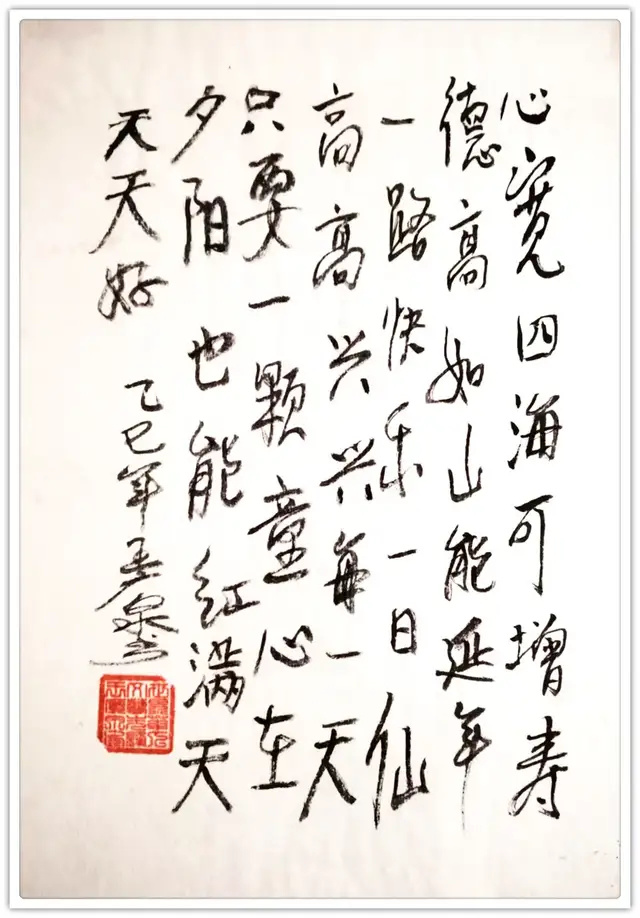 心宽四海可增寿
德高如山能延年
一路快乐一日仙
高高兴兴每一天
只要一颗童心在
夕阳也能红满天
天天好
乙巳年